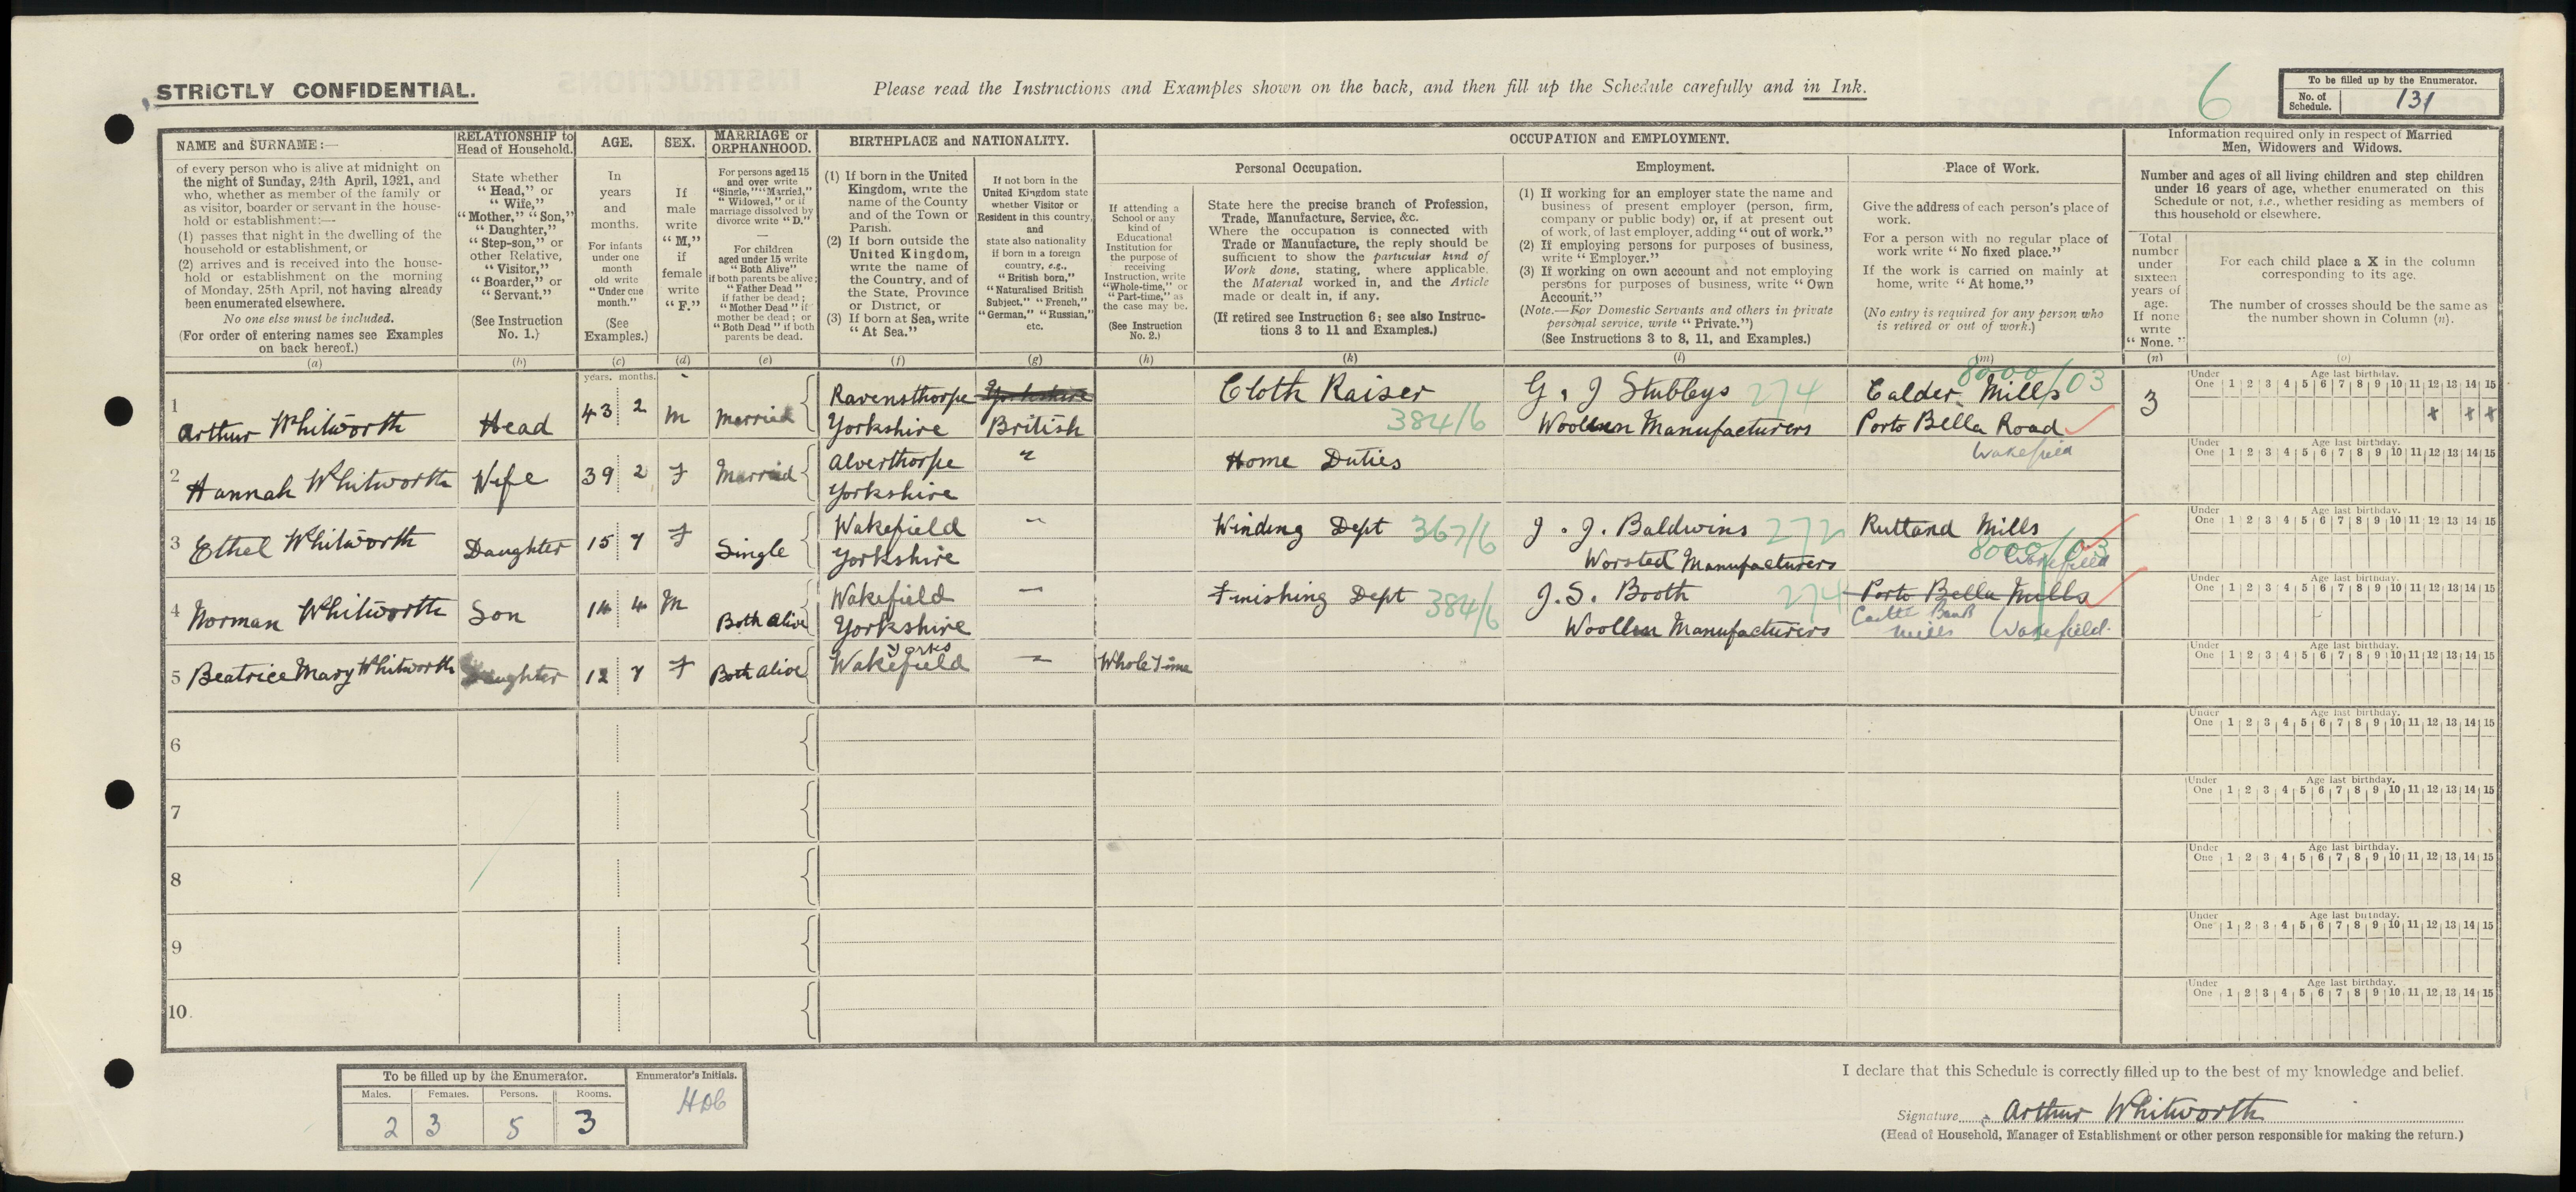 STRICTLY CONFIDENTIAL.
Please read the Instructions and Examples shown on the back, and then fill up the Schedule carefully and in Ink.
6
To be filled up by the Enumerator.
No. of Schedule. 131
NAME and SURNAME:—
of every person who is alive at midnight on
the night of Sunday, 24th April, 1921, and
who, whether as member of the family or
as visitor, boarder or servant in the house-
hold or establishment:—
(1) passes that night in the dwelling of the
household or establishment, or
(2) arrives and is received into the house-
hold or establishment on the morning
of Monday, 25th April, not having already
been enumerated elsewhere.
No one else must be included.
(For order of entering names see Examples
on back hereof.)
(a)
RELATIONSHIP to
Head of Household.
State whether
"Head," or
"Wife,"
"Mother," "Son,"
"Daughter,"
"Step-son," or
other Relative,
"Visitor,"
"Boarder," or
"Servant."
(See Instruction
No. 1.)
(b)
AGE.
In
years
and
months.
For infants
under one
month
old write
"Under one
month."
(See
Examples.)
(c)
SEX.
If
male
write
"M,"
if
female
write
"F."
(d)
MARRIAGE or
ORPHANHOOD.
For persons aged 15
and over write
"Single," "Married,"
"Widowed," or if
marriage dissolved by
divorce write "D."
—
For children
aged under 15 write
"Both Alive"
if both parents be alive;
"Father Dead"
if father be dead;
"Mother Dead" if
mother be dead; or
"Both Dead" if both
parents be dead.
(e)
BIRTHPLACE and NATIONALITY.
(1) If born in the United
Kingdom, write the
name of the County
and of the Town or
Parish.
(2) If born outside the
United Kingdom,
write the name of
the Country, and of
the State, Province
or District, or
(3) If born at Sea, write
"At Sea."
(f)
If not born in the
United Kingdom state
whether Visitor or
Resident in this country,
and
state also nationality
if born in a foreign
country, e.g.,
"British born,"
"Naturalised British
Subject," "French,"
"German," "Russian,"
etc.
(g)
OCCUPATION and EMPLOYMENT.
If attending a
School or any
kind of
Educational
Institution for
the purpose of
receiving
Instruction, write
"Whole-time," or
"Part-time," as
the case may be.
(See Instruction
No. 2.)
(h)
Personal Occupation.
State here the precise branch of Profession,
Trade, Manufacture, Service, &c.
Where the occupation is connected with
Trade or Manufacture, the reply should be
sufficient to show the particular kind of
Work done, stating, where applicable,
the Material worked in, and the Article
made or dealt in, if any.
(If retired see Instruction 6: see also Instruc-
tions 3 to 11 and Examples.)
(k)
Employment.
(1) If working for an employer state the name and
business of present employer (person, firm,
company or public body) or, if at present out
of work, of last employer, adding "out of work."
(2) If employing persons for purposes of business,
write "Employer."
(3) If working on own account and not employing
persons for purposes of business, write "Own
Account."
(Note.—For Domestic Servants and others in private
personal service, write "Private.")
(See Instructions 3 to 8, 11, and Examples.)
(l)
Place of Work.
Give the address of each person's place of
work.
For a person with no regular place of
work write "No fixed place."
If the work is carried on mainly at
home, write "At home."
(No entry is required for any person who
is retired or out of work.)
(m)
Information required only in respect of Married
Men, Widowers and Widows.
Number and ages of all living children and step children
under 16 years of age, whether enumerated on this
Schedule or not, i.e., whether residing as members of
this household or elsewhere.
Total
number
under
sixteen
years of
age.
If none
write
"None."
(n)
For each child place a X in the column
corresponding to its age.
The number of crosses should be the same as
the number shown in Column (n).
(o)
years. months.
1 Arthur Whitworth Head 43 2 M Married Ravensthorpe Yorkshire Yorkshire British Cloth Raiser 384/6 G. J Stubleys 274 Woollen Manufacturers Calder Mills 8000/03 Porto Bella Road Wakefield 3
Under One 1 2 3 4 5 6 7 8 9 10 11 12 13 14 15 Age last birthday.
x x x
2 Hannah Whitworth Wife 39 2 F Married Alverthorpe Yorkshire " Home Duties
Under One 1 2 3 4 5 6 7 8 9 10 11 12 13 14 15 Age last birthday.
3 Ethel Whitworth Daughter 15 7 F Single Wakefield Yorkshire " Winding Dept 367/6 J. J. Baldwins 272 Worsted Manufacturers Rutland Mills 8000/03 Wakefield
Under One 1 2 3 4 5 6 7 8 9 10 11 12 13 14 15 Age last birthday.
4 Norman Whitworth Son 14 4 M Both Alive Wakefield Yorkshire " Finishing Dept 384/6 J. S. Booth 274 Woollen Manufacturers Porto Bella Mills Mills Wakefield.
Under One 1 2 3 4 5 6 7 8 9 10 11 12 13 14 15 Age last birthday.
5 Beatrice Mary Whitworth Daughter 12 7 F Both Alive Yorks Wakefield " Whole Time
Under One 1 2 3 4 5 6 7 8 9 10 11 12 13 14 15 Age last birthday.
6
Under One 1 2 3 4 5 6 7 8 9 10 11 12 13 14 15 Age last birthday.
7
Under One 1 2 3 4 5 6 7 8 9 10 11 12 13 14 15 Age last birthday.
8
Under One 1 2 3 4 5 6 7 8 9 10 11 12 13 14 15 Age last birthday.
9
Under One 1 2 3 4 5 6 7 8 9 10 11 12 13 14 15 Age last birthday.
10.
Under One 1 2 3 4 5 6 7 8 9 10 11 12 13 14 15 Age last birthday.
To be filled up by the Enumerator.
Males. Females. Persons. Rooms.
2 3 5 3
Enumerator's Initials.
I declare that this Schedule is correctly filled up to the best of my knowledge and belief.
Signature Arthur Whitworth
(Head of Household, Manager of Establishment or other person responsible for making the return.)